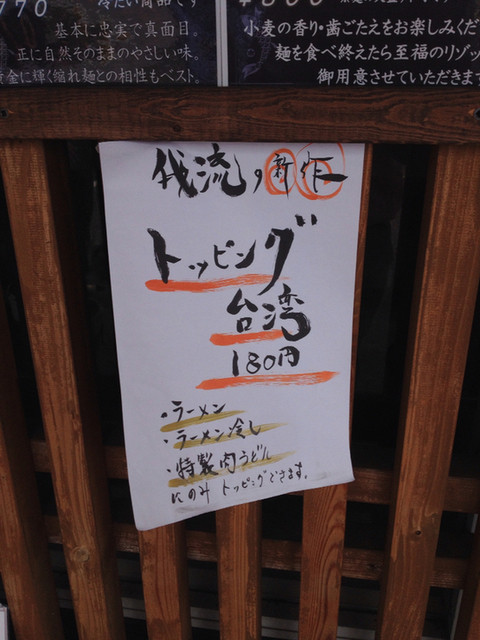 770
冷たい商品です
基本に忠実で真面目。
正に自然そのままのやさしい味。
金に輝く縮れ麺との相性もベスト。
小麦の香り・歯ごたえをお楽しみくだ
麺を食べ終えたら至福のリゾッ
御用意させていただきます
我流の新作
トッピング
台湾
180円
・ラーメン
・ラーメン冷し
・特製肉うどん
にのみ トッピングできます。